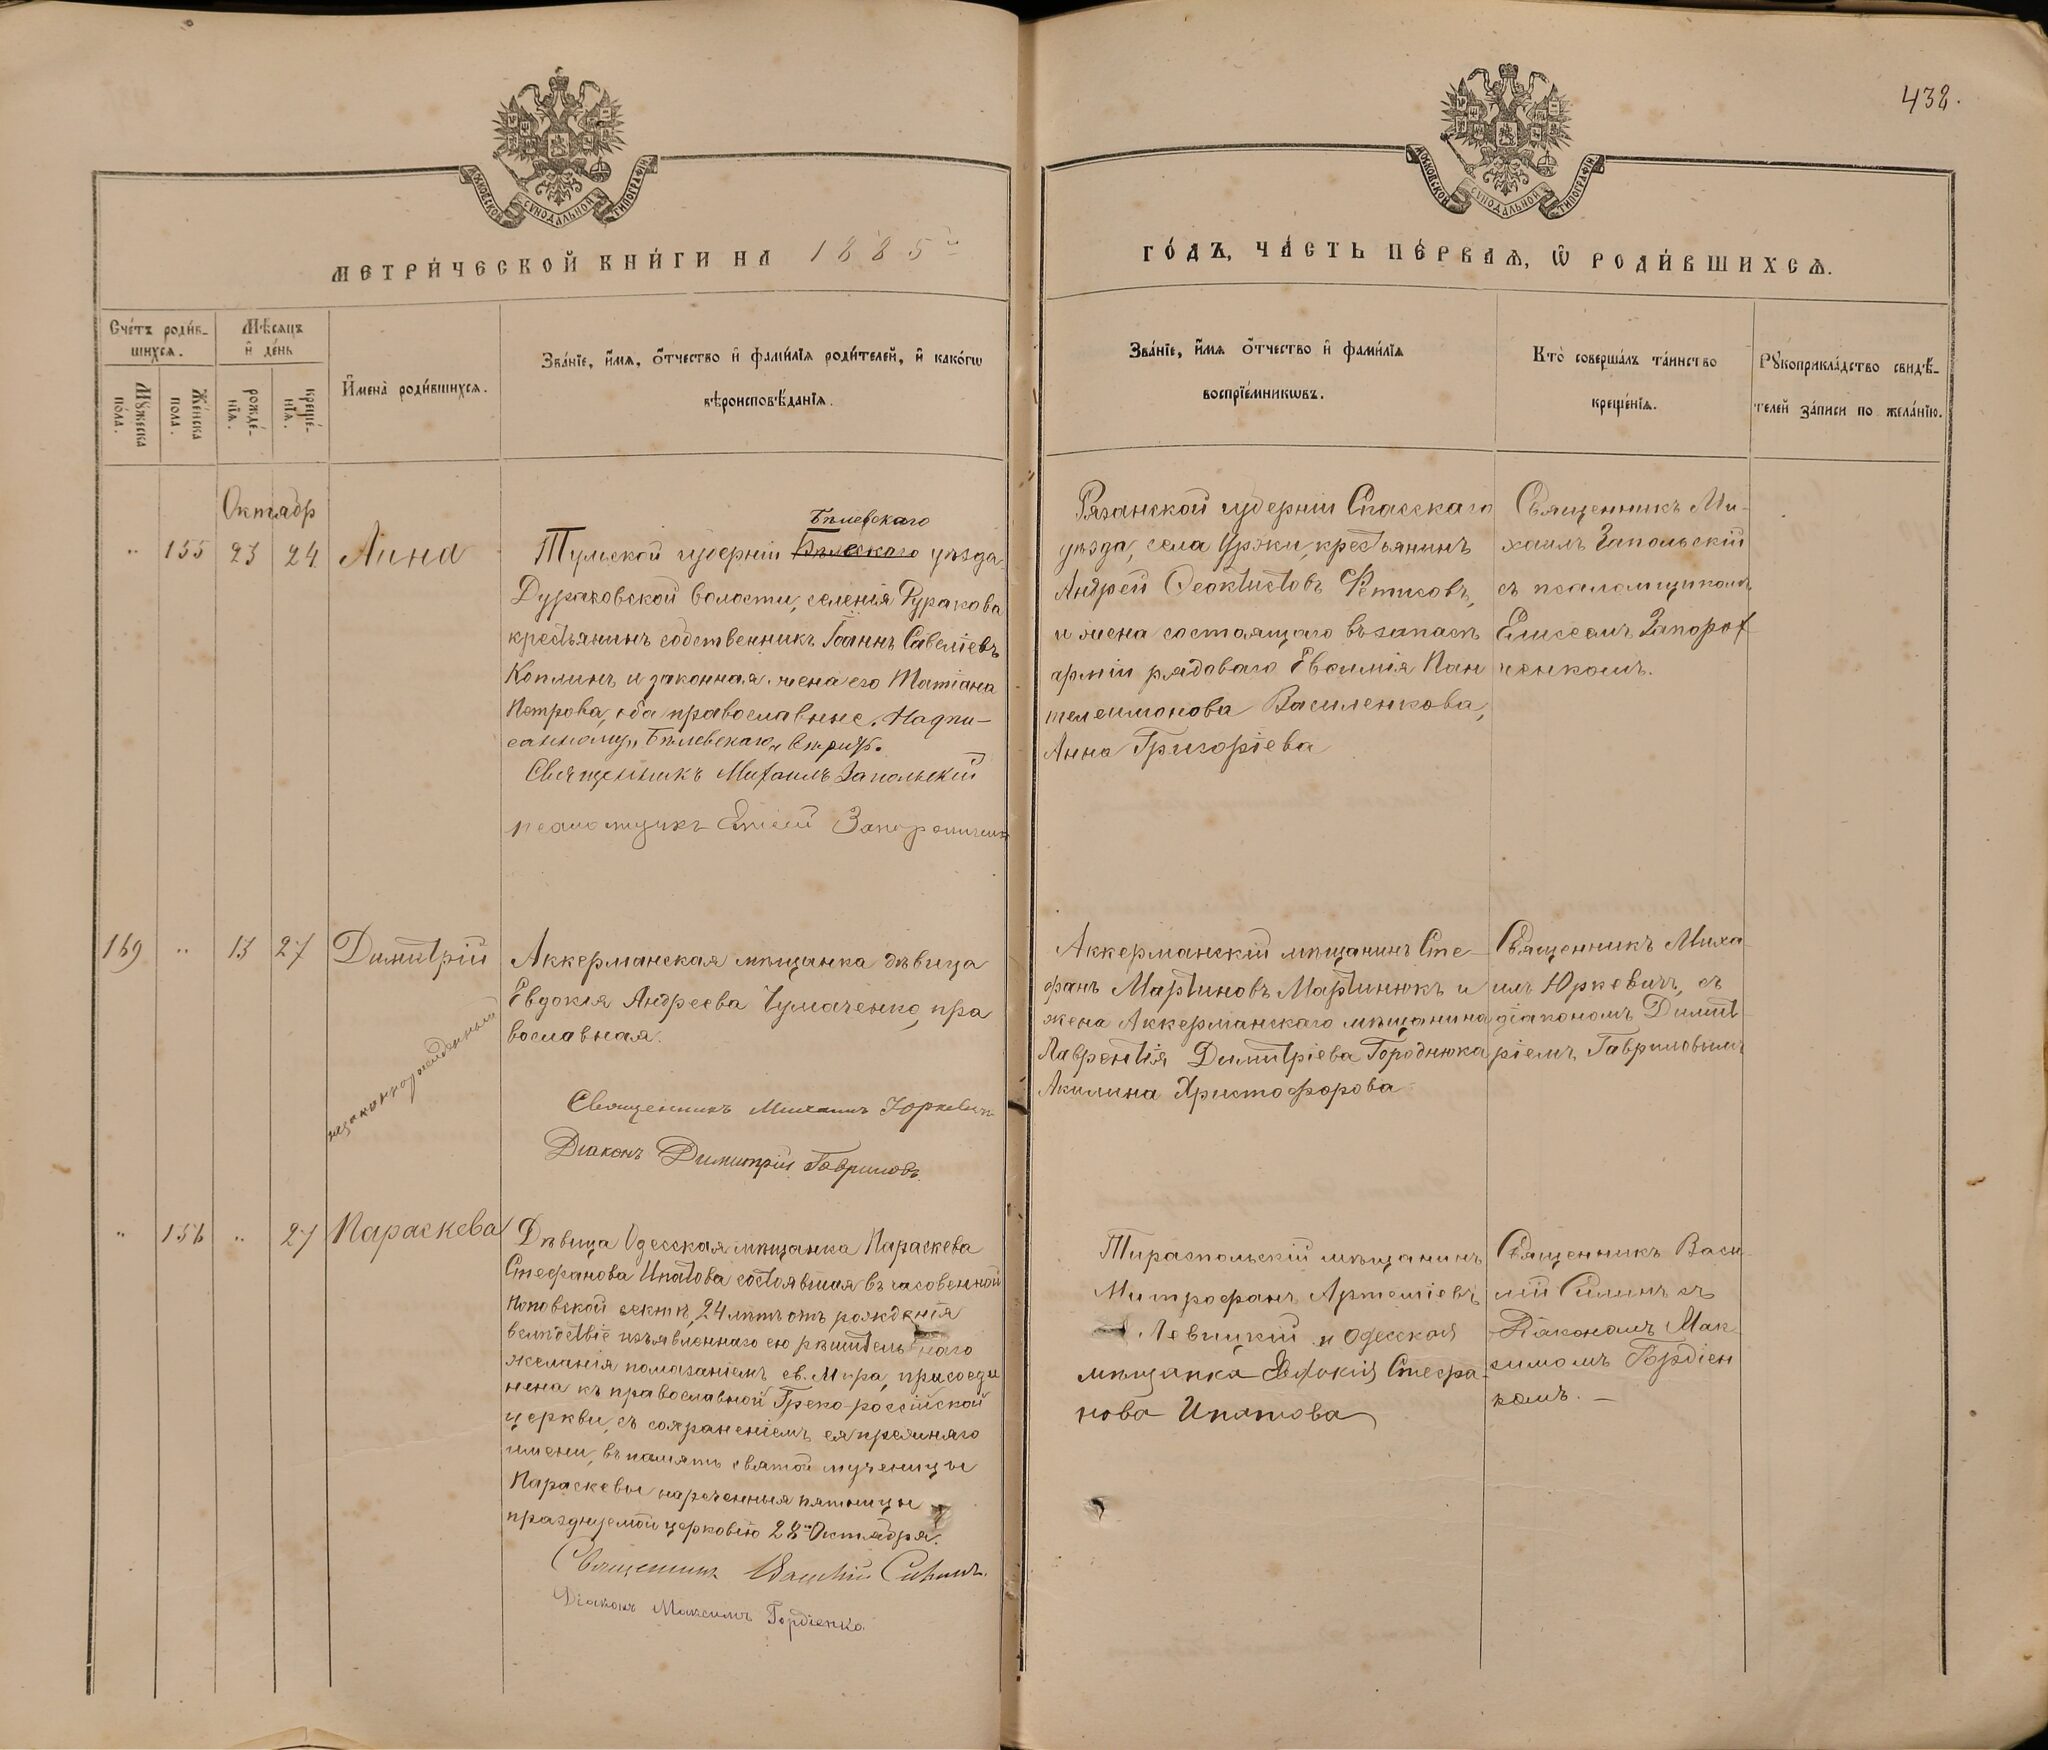 438.
МОСКОВСКОЙ СУНОДАЛЬНОЙ ТИПОГРАФІИ
МОСКОВСКОЙ СУНОДАЛЬНОЙ ТИПОГРАФІИ
МЕТРИ́ЧЕСКОЙ КНИ́ГИ НА 1885й
ГО́ДЪ, ЧА́СТЬ ПЕ́РВАѦ, Ѡ҆ РОДИ́ВШИХСѦ.
Сче́тъ роди́в-
шихсѧ.
Мꙋ́жеска
по́ла.
Же́нска
пола.
Мѣ́сѧцъ
и҆ де́нь
рожде́-
нїѧ.
креще́-
нїѧ.
И҆мена̀ роди́вшихсѧ.
Зва́нїе, и҆́мѧ, ѻ҆́тчество и҆ фами́лїѧ роди́телей, и҆ како́гѡ
вѣроисповѣ́данїѧ.
Зва́нїе, и҆́мѧ ѻ҆́тчество и҆ фами́лїѧ
воспрїе́мникѡвъ.
Кто̀ соверша́лъ та́инство
креще́нїѧ.
Рꙋкоприкла́дство свидѣ́-
телей за́писи по жела́нїю.
Октябр
" 155 23 24 Анна
Бѣлевскаго
Тульской губерніи Бѣлескаго уѣзда
Дураковской волости, селенія Дуракова
крестьянинъ собственникъ Іоаннъ Савеліевъ
Коплинъ и законная жена его Татіана
Петрова, оба православные. Надпи-
санному „Бѣлевскаго„ вѣрить.
Священникъ Михаилъ Запольскій
псаломщикъ Елисей
Рязанской губерніи Спасскаго
уѣзда, села Уржи, крестьянинъ
Андрей Ѳеоктистовъ Фетисовъ,
и жена состоящаго въ запасѣ
арміи рядоваго Евѳимія Пан
телеимонова Василенкова,
Анна Григоріева
Священникъ Ми-
хаилъ Запольскій
съ псаломщикомъ
Елисеемъ Запорож
ченкомъ.
169 " 13 27 Димитрій
незаконнорожденный
Аккерманская мѣщанка дѣвица
Евдокія Андреева Чумаченко, пра
вославная.
Священникъ Михаилъ Юркевичъ
Діаконъ Димитрій Гавриловъ
Аккерманскій мѣщанинъ Сте-
фанъ Мартиновъ Мартинюкъ и
жена Аккерманскаго мѣщанина
Лаврентія Димитріева Городнюка
Акилина Христофорова
Священникъ Миха-
илъ Юркевичъ, съ
діакономъ Димит-
ріемъ Гавриловымъ
" 156 " 27 Параскева
Дѣвица Одесская мѣщанка Параскева
Стефанова Ипатова состоявшая въ часовенной
Поповской сектѣ, 24 лѣтъ отъ рожденія
вслѣдствіе изъявленнаго ею рѣшительнаго
желанія помазаніемъ св. Мира, присоеди
нена къ православной Греко-россійской
церкви, съ сохраненіемъ ея прежняго
имени, въ память святой мученицы
Параскевы нареченныя пятницы
празднуемой церковію 28го Октября.
Священникъ Василій Силинъ.
Діаконъ Максимъ Гордіенко
Тираспольскій мѣщанинъ
Митрофанъ Артеміевъ
Левицкій и Одесская
мѣщанка Евдокія Стефа-
нова Ипатова
Священникъ Васи-
лій Силинъ съ
Діакономъ Мак-
симомъ Гордіен
комъ. —